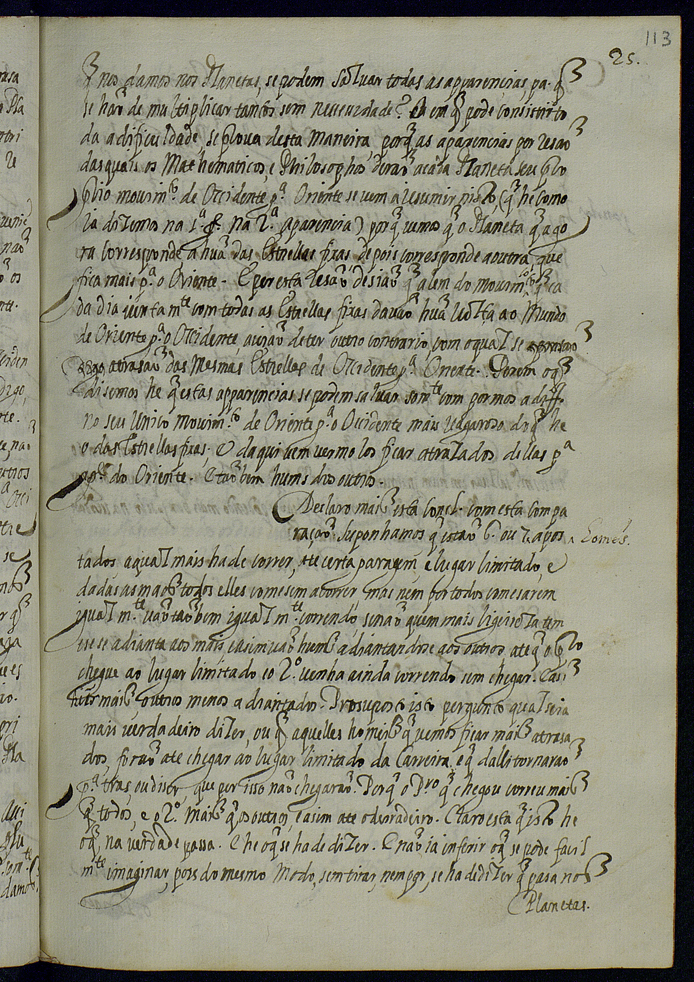 113
25.
q̃ nos damos nos Planetas, se podem saluar todas as apparencias pa. q̃
se hão de multiplicar tantos sem necessidade? O em q̃ pode consistir to
da a dificuldade, se proua desta maneira porq̃ as aparencias por resão
das quais os Mathematicos, e Philosophos derão a cada Planeta seu pro
prio mouimto. de Occidente pa. Oriente se vem a resumir nisto, (q̃ he como
ia dissemos na 1ª. p. na 2ª. aparencia) porq̃ vemos q̃ o Planeta q̃ ago
ra corresponde a hũa das Estrellas fixas depois corresponde a outra, que
fica mais pa. o Oriente. E por esta resão desião q̃ alem do mouimto. q̃ ca
da dia juntamte com todas as Estrellas fixas dauão hũa uolta ao Mundo
de Oriente pa. o Occidente auião de ter outro contrario, com o qual se
atrasão das mesmas Estrellas de Occidente pa. Oriente. Porem o q̃
dissemos he q̃ estas apparencias se podem saluar somte com pormos a
no seu Unico mouimto. de Oriente pa. o Occidente mais uagaroso do q̃ he
o das Estrellas fixas. E daqui vem vermolos ficar atrazados dellas pa.
do Oriente. E tão bem huns dos outros.
Declaro mais esta concl. com esta compa
ração. Suponhamos q̃ estão 6. ou 7. apos
homẽs.
tados a qual mais hade correr, ate certa paragem, e lugar limitado, e
dadas as maos todos elles comesem a correr mas nem por todos comesarem
igualmte. uão tão bem igualmte. correndo senão quem mais ligeireza tem
esse se adianta aos mais e asim uão huns adiantandose aos outros ate q̃ o pro
chegue ao lugar limitado e o 2º. venha ainda correndo sem chegar. E asi
outros mais e outros menos adiantados. Prosuposto isto pergunto qual seia
mais uerdadeiro dizer, ou q̃ aquelles homẽs q̃ vemos ficar mais atrasa
dos, forão ate chegar ao lugar limitado da Carreira e q̃ dalli tornarão
pa. tras, ou diser, que por isso não chegarão. Porq̃ o Pro. q̃ chegou correu mais
q̃ todos, e o 2º. mais q̃ os outros, e asim ate o derradeiro. Claro esta q̃ isto he
o q̃ na verdade passa. E he o q̃ se hade dizer. E não ia inferir o q̃ se pode facil
mte imaginar, pois do mesmo modo, sem tirar, nem por, se ha de dizer q̃ pasa nos
Planetas.